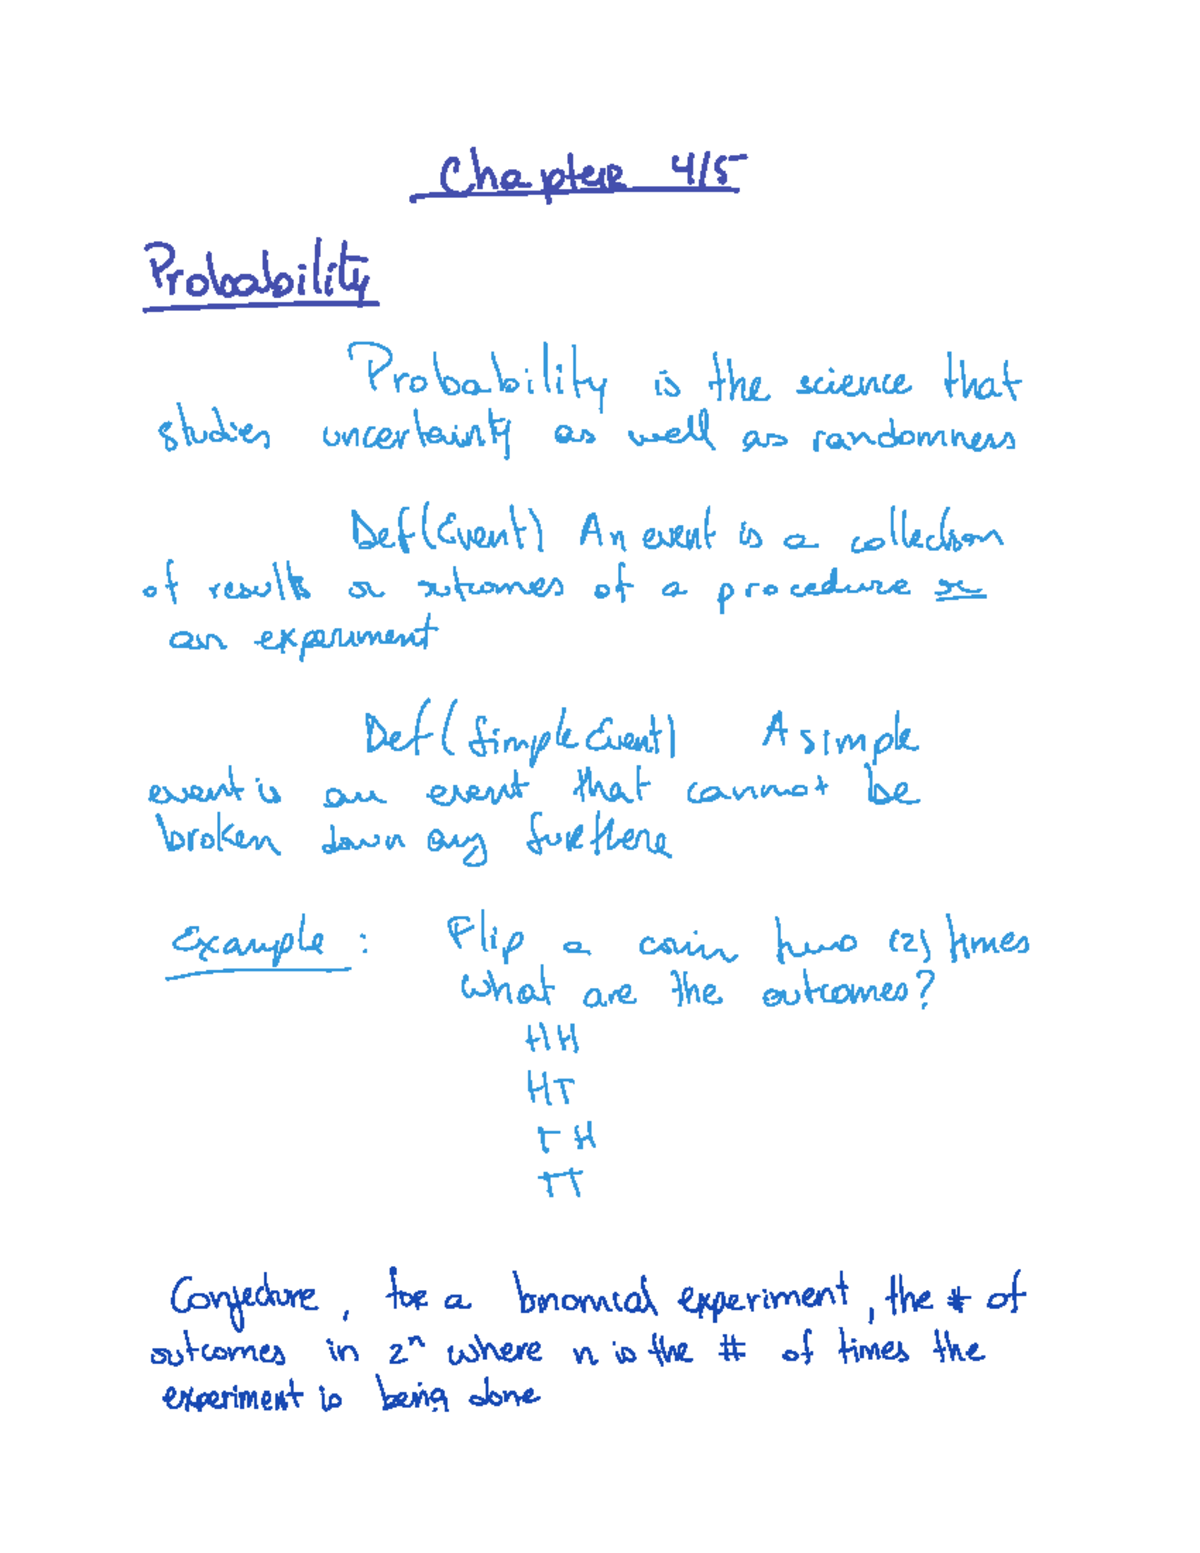 Chapter 4/5
Probability
Probability is the science that
studies uncertainty as well as randomness
Def(Event) An event is a collection
of results or outcomes of a procedure or
an experiment
Def(Simple Event) A simple
event is an event that cannot be
broken down any further
Example: Flip a coin two (2) times
What are the outcomes?
HH
HT
TH
TT
Conjecture, for a binomial experiment, the # of
outcomes in 2ⁿ where n is the # of times the
experiment is being done